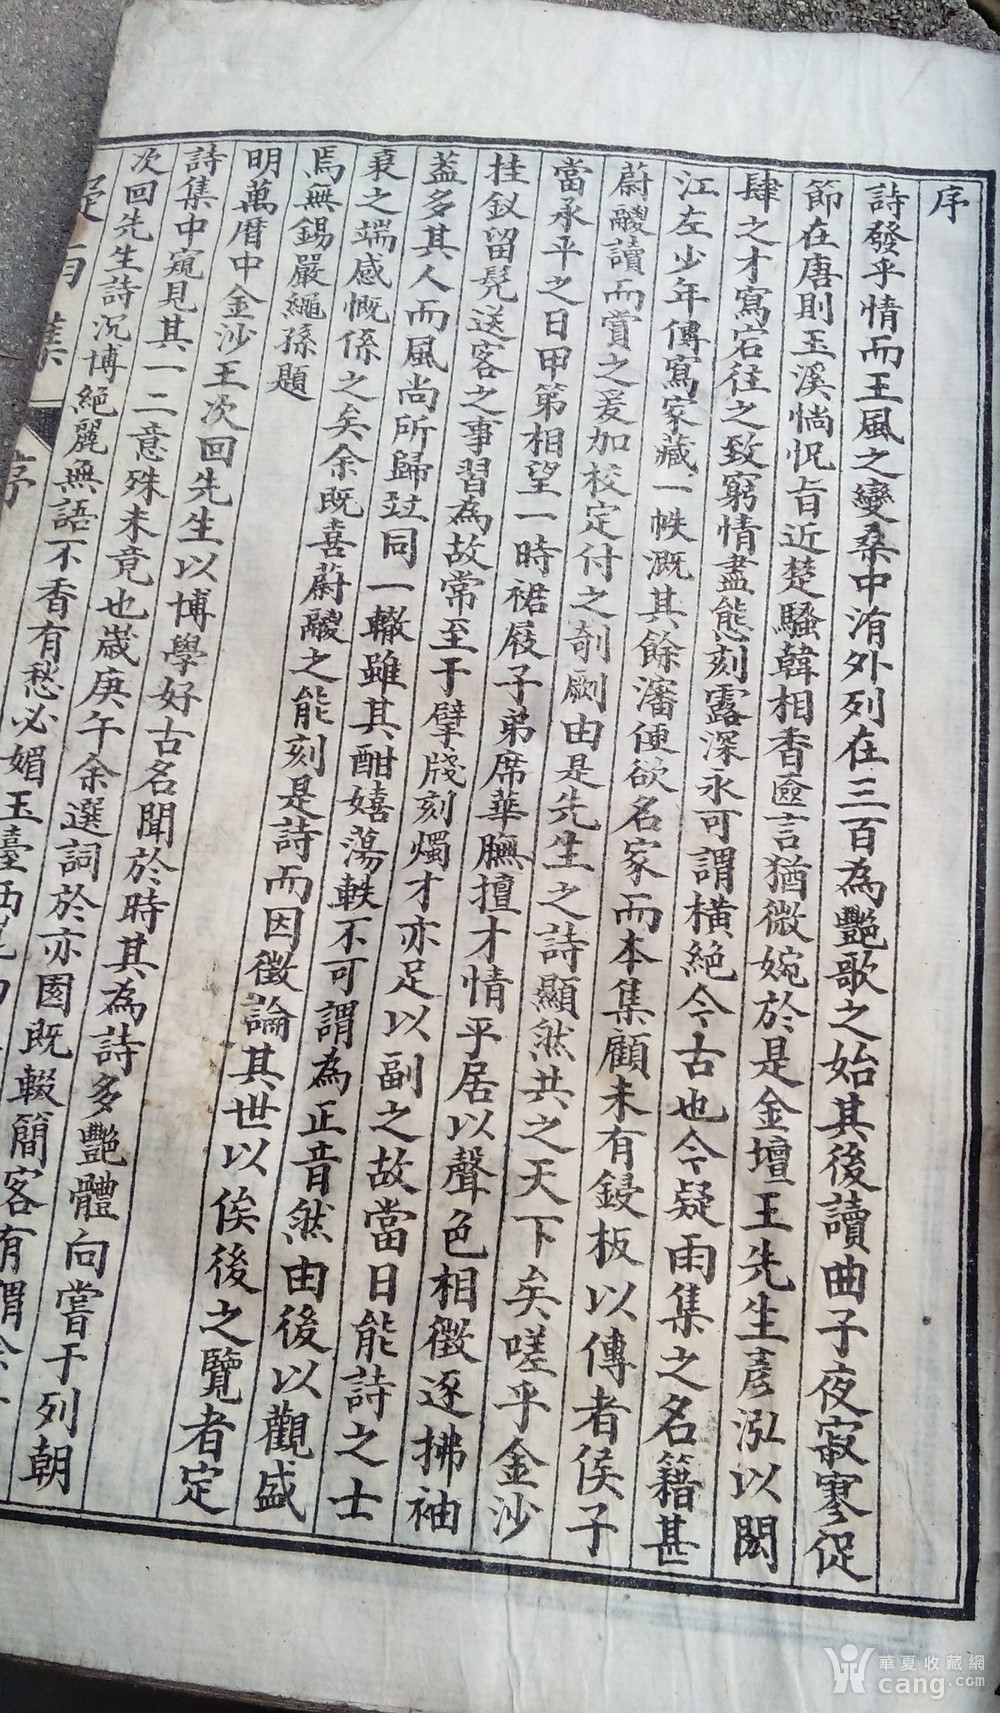 序
詩發乎情而王風之變桑中洧外列在三百為艷歌之始其後讀曲子夜寂寥促
節在唐則玉溪惝怳旨近楚騷韓相香奩言猶微婉於是金壇王先生彥泓以閎
肆之才寫宕往之致窮情盡態刻露深永可謂橫絕今古也今疑雨集之名籍甚
江左少年傳寫家藏一帙溉其餘瀋便欲名家而本集顧未有鋟板以傳者侯子
蔚鷇讀而賞之爰加校定付之剞劂由是先生之詩顯然共之天下矣嗟乎金沙
當承平之日甲第相望一時裙屐子弟席華膴擅才情平居以聲色相徵逐拂袖
挂釵留髡送客之事習為故常至于擘牋刻燭才亦足以副之故當日能詩之士
蓋多其人而風尚所歸竝同一轍雖其酣嬉蕩軼不可謂為正音然由後以觀盛
衰之端感慨係之矣余既喜蔚鷇之能刻是詩而因徵論其世以俟後之覽者定
焉無錫嚴繩孫題
明萬曆中金沙王次回先生以博學好古名聞於時其為詩多艷體向嘗于列朝
詩集中窺見其一二意殊未竟也歲庚午余選詞於亦園既輟簡客有謂余
次回先生詩沉博絕麗無語不香有愁必媚玉臺西崑
疑雨集
序
華夏收藏網
cang.com